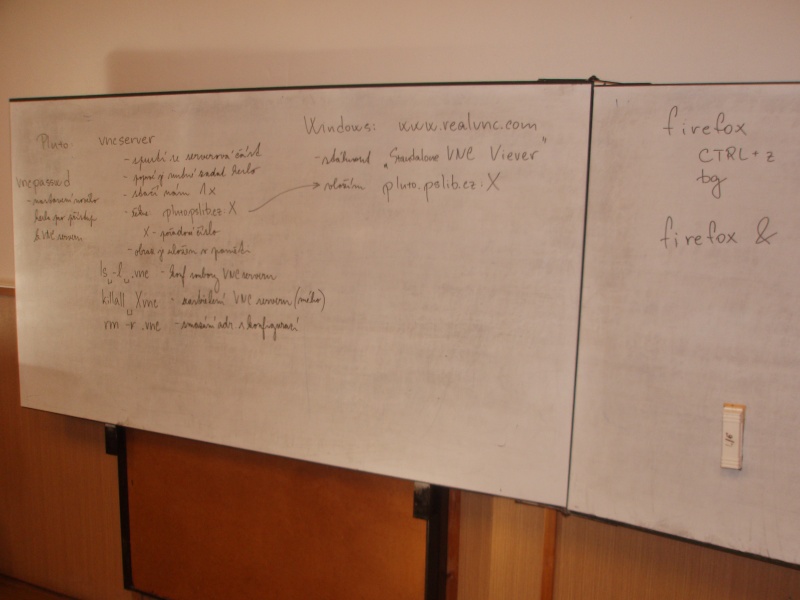 Pluto:
vncserver
- spustí se serverová část
- poprvé nutné zadat heslo
- stačí nám 1x
- pluto.pslib.cz:X
X - pořadové číslo
- obraz je uložen v paměti
vncpasswd
- nastavení nového
hesla pro přístup
k VNC serveru
ls -l .vnc - konf soubory VNC serveru
killall Xvnc - zastřelení VNC serveru (mého)
rm -r .vnc - smazání adr s konfigurací
Windows: www.realvnc.com
- stáhnout „Standalone VNC Viever"
pluto.pslib.cz:X
firefox
CTRL+z
bg
firefox &